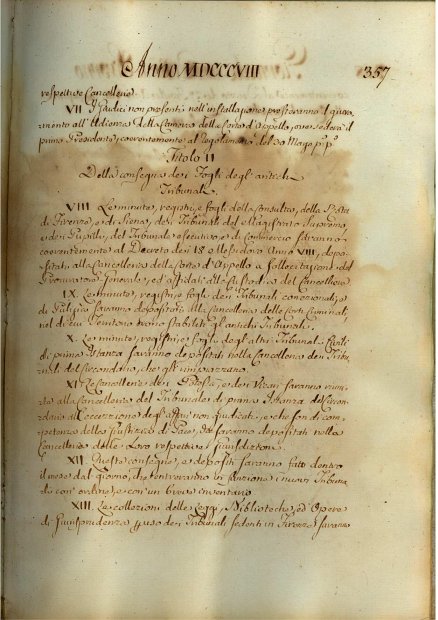 Anno MDCCCVIII 357
respettive Cancellerie.
VII I Giudici non presenti nell'installazione presteranno il giura-
mento all'Udienza della Camera della Corte d'Appello, ove sederà il
primo Presidente, coerentemente al Regolamento del 30 Marzo p.p.
Titolo II
Della consegna dei Fogli degl'antichi
Tribunali.
VIII Le minute, registri, e fogli della Consulta, della Rota
di Firenze, e di Siena, del Tribunale del Magistrato Supremo,
e dei Pupilli, del Tribunale esecutivo e di Commercio saranno
coerentemente al Decreto dei 18 Messidoro Anno VIII, depo-
sitati alla Cancelleria della Corte d'Appello a sollecitazione del
Procuratore Generale, ed affidati alla custodia del Cancelliere
IX. Le minute, registri e fogli dei Tribunali criminali, e
di Polizia saranno depositati alla Cancelleria delle Corti Criminali,
nel di cui Territorio erano stabiliti gl'antichi Tribunali.
X. Le minute, registri e fogli degl'altri Tribunali Civili
di prima Istanza saranno depositati nella Cancelleria dei Tribu-
nali del Circondario, che gli rimpiazzano.
XI Le Cancellerie dei Potestà, e dei Vicari saranno riunite
alla Cancelleria del Tribunale di prima Istanza del Circon-
dario all'eccezzione degl'affari non giudicati, e che son di com-
petenza delle Giustizie di Pace, che saranno depositati nella
Cancelleria delle Loro respettive Giurisdizioni.
XII. Queste consegne, e depositi saranno fatti dentro
il mese dal giorno, che entreranno in funzione i nuovi Tribuna-
li con ordine, e con un breve inventario
XIII. Le collezioni delle Leggi, Biblioteche, ed Opere
di Giurisprudenza ad uso dei Tribunali sedenti in Firenze saranno